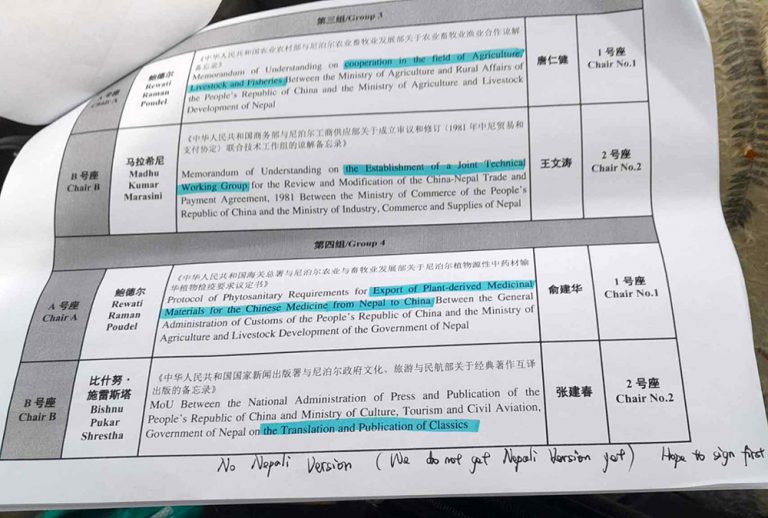 第三组/Group 3
A 号座
Chair A
鲍德尔
Rewati
Raman
Poudel
《中华人民共和国农业农村部与尼泊尔农业畜牧业发展部关于农业畜牧业渔业合作谅解
备忘录》
Memorandum of Understanding on cooperation in the field of Agriculture,
Livestock and Fisheries Between the Ministry of Agriculture and Rural Affairs of
the People's Republic of China and the Ministry of Agriculture and Livestock
Development of Nepal
唐仁健
1 号座
Chair No.1
B 号座
Chair B
马拉希尼
Madhu
Kumar
Marasini
《中华人民共和国商务部与尼泊尔工商供应部关于成立审议和修订《1981 年中尼贸易和
支付协定》联合技术工作组的谅解备忘录》
Memorandum of Understanding on the Establishment of a Joint Technical
Working Group for the Review and Modification of the China-Nepal Trade and
Payment Agreement, 1981 Between the Ministry of Commerce of the People's
Republic of China and the Ministry of Industry, Commerce and Supplies of Nepal
王文涛
2 号座
Chair No.2
第四组/Group 4
A 号座
Chair A
鲍德尔
Rewati
Raman
Poudel
《中华人民共和国海关总署与尼泊尔农业与畜牧业发展部关于尼泊尔植物源性中药材输
华植物检疫要求议定书》
Protocol of Phytosanitary Requirements for Export of Plant-derived Medicinal
Materials for the Chinese Medicine from Nepal to China Between the General
Administration of Customs of the People's Republic of China and the Ministry of
Agriculture and Livestock Development of the Government of Nepal
俞建华
1 号座
Chair No.1
B 号座
Chair B
比什努·
施雷斯塔
Bishnu
Pukar
Shrestha
《中华人民共和国国家新闻出版署与尼泊尔政府文化、旅游与民航部关于经典著作互译
出版的备忘录》
MoU Between the National Administration of Press and Publication of the
People's Republic of China and Ministry of Culture, Tourism and Civil Aviation,
Government of Nepal on the Translation and Publication of Classics
张建春
2 号座
Chair No.2
No Nepali Version (We do not get Nepali Version yet) Hope to sign first